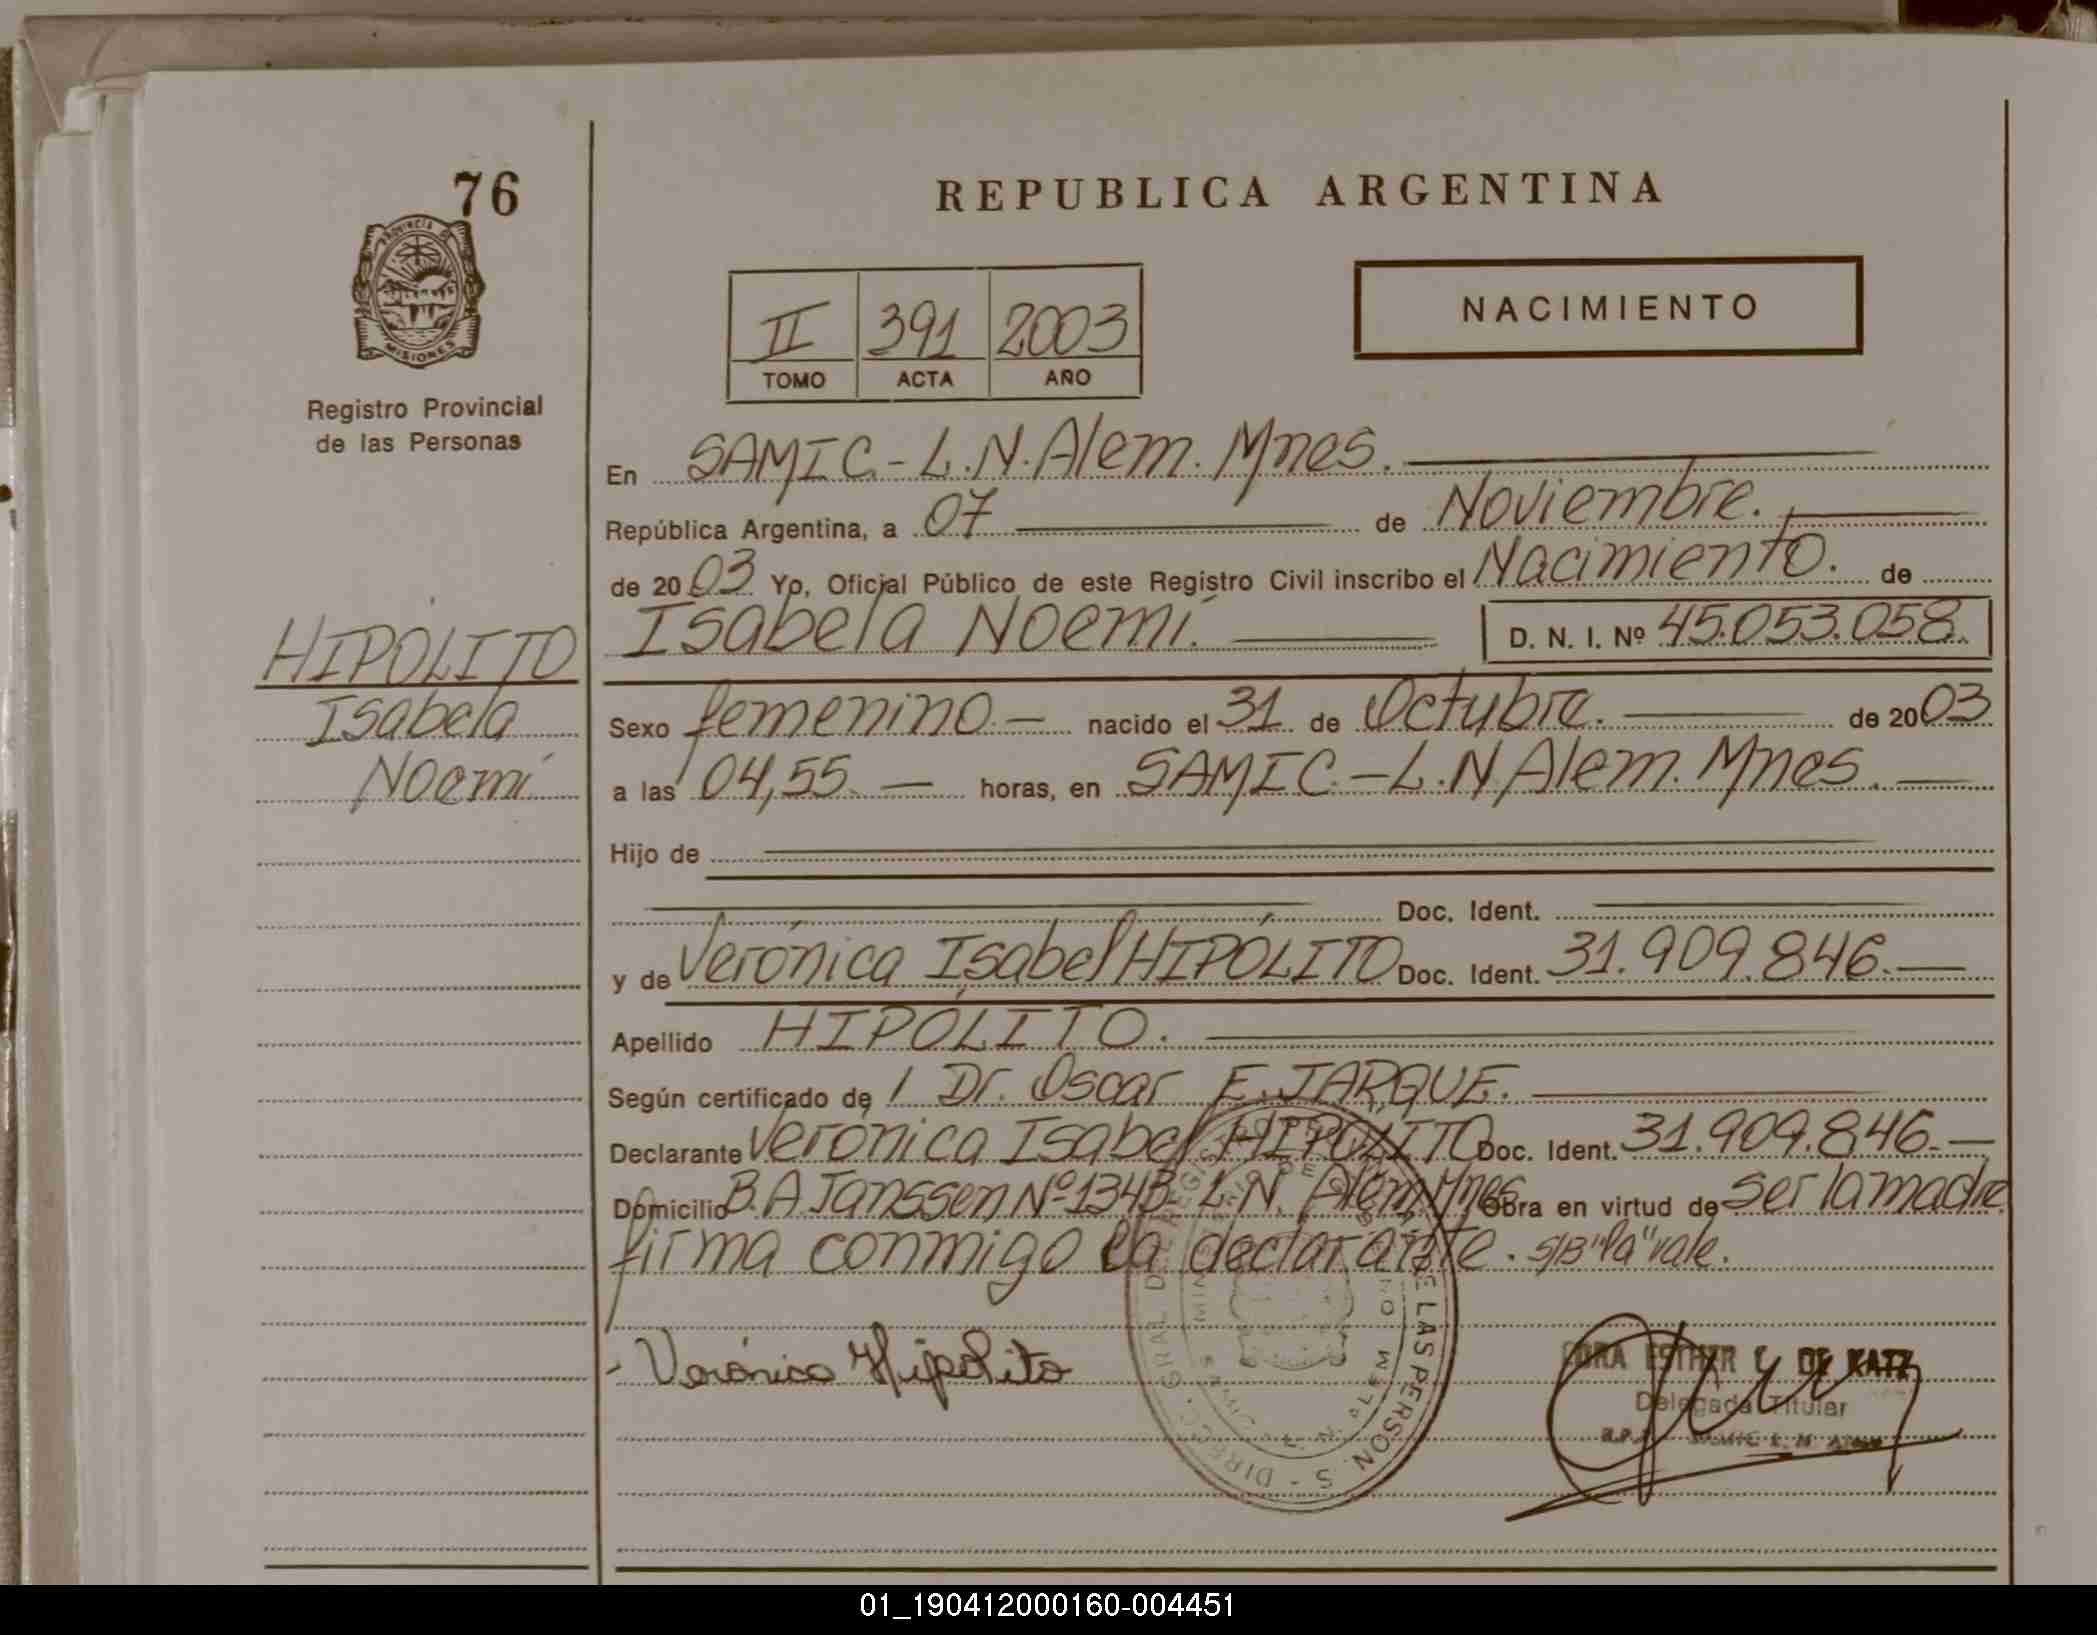 76
PROVINCIA DE
MISIONES
Registro Provincial
de las Personas
HIPOLITO
Isabela
Noemí
REPUBLICA ARGENTINA
II 391 2003
TOMO ACTA AÑO
NACIMIENTO
En SAMIC.-L.N.Alem. Mnes.
República Argentina, a 07 de Noviembre.
de 2003 Yo, Oficial Público de este Registro Civil inscribo el Nacimiento. de
Isabela Noemí. D. N. I. Nº 45.053.058.
Sexo femenino.- nacido el 31 de Octubre. de 2003
a las 04,55.- horas, en SAMIC.-L.N Alem. Mnes.
Hijo de
Doc. Ident.
y de Verónica Isabel HIPÓLITO Doc. Ident. 31.909.846.-
Apellido HIPÓLITO.
Según certificado de / Dr. Oscar E. JARQUE.
Declarante Verónica Isabel HIPÓLITO Doc. Ident. 31.909.846.-
Domicilio B. A Janssen Nº 1343 L.N. Alem Mnes Obra en virtud de ser la madre
firma conmigo la declarante. S/B "la" vale.
Verónica Hipolito
ESTHER DE KATZ
Delegada Titular
SAMIC L. N. ALEM
DIREC. GRAL DE REGISTRO DE LAS PERSON. S
L. N. ALEM
01_190412000160-004451